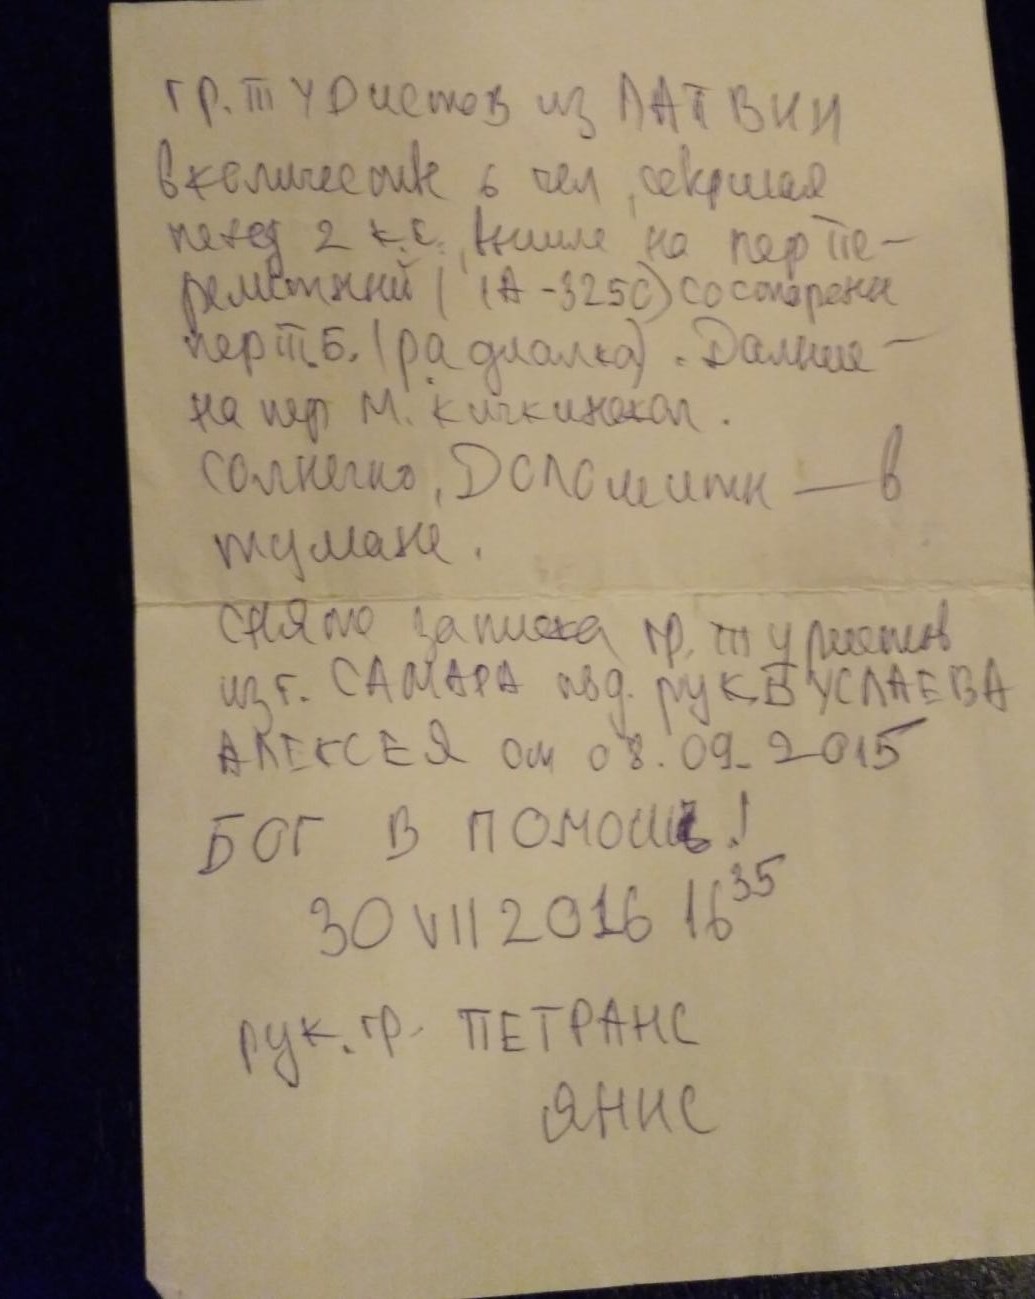 гр. туристов из ЛАТВИИ
в количестве 6 чел, совершая
поход 2 к.с., вышла на пер Пе-
ремётный (1А-3250) со стороны
пер Т.Б. (радиалка). Дальше -
на пер М. Кичкинекол.
Солнечно, Доломиты — в
тумане.
снято записка гр. туристов
из г. САМАРА под. рук. БУСЛАЕВА
АЛЕКСЕЯ от 08.09.2015
БОГ В ПОМОЩЬ!
30 VII 2016 16 35
рук. гр. ПЕТРАНС
ЯНИС